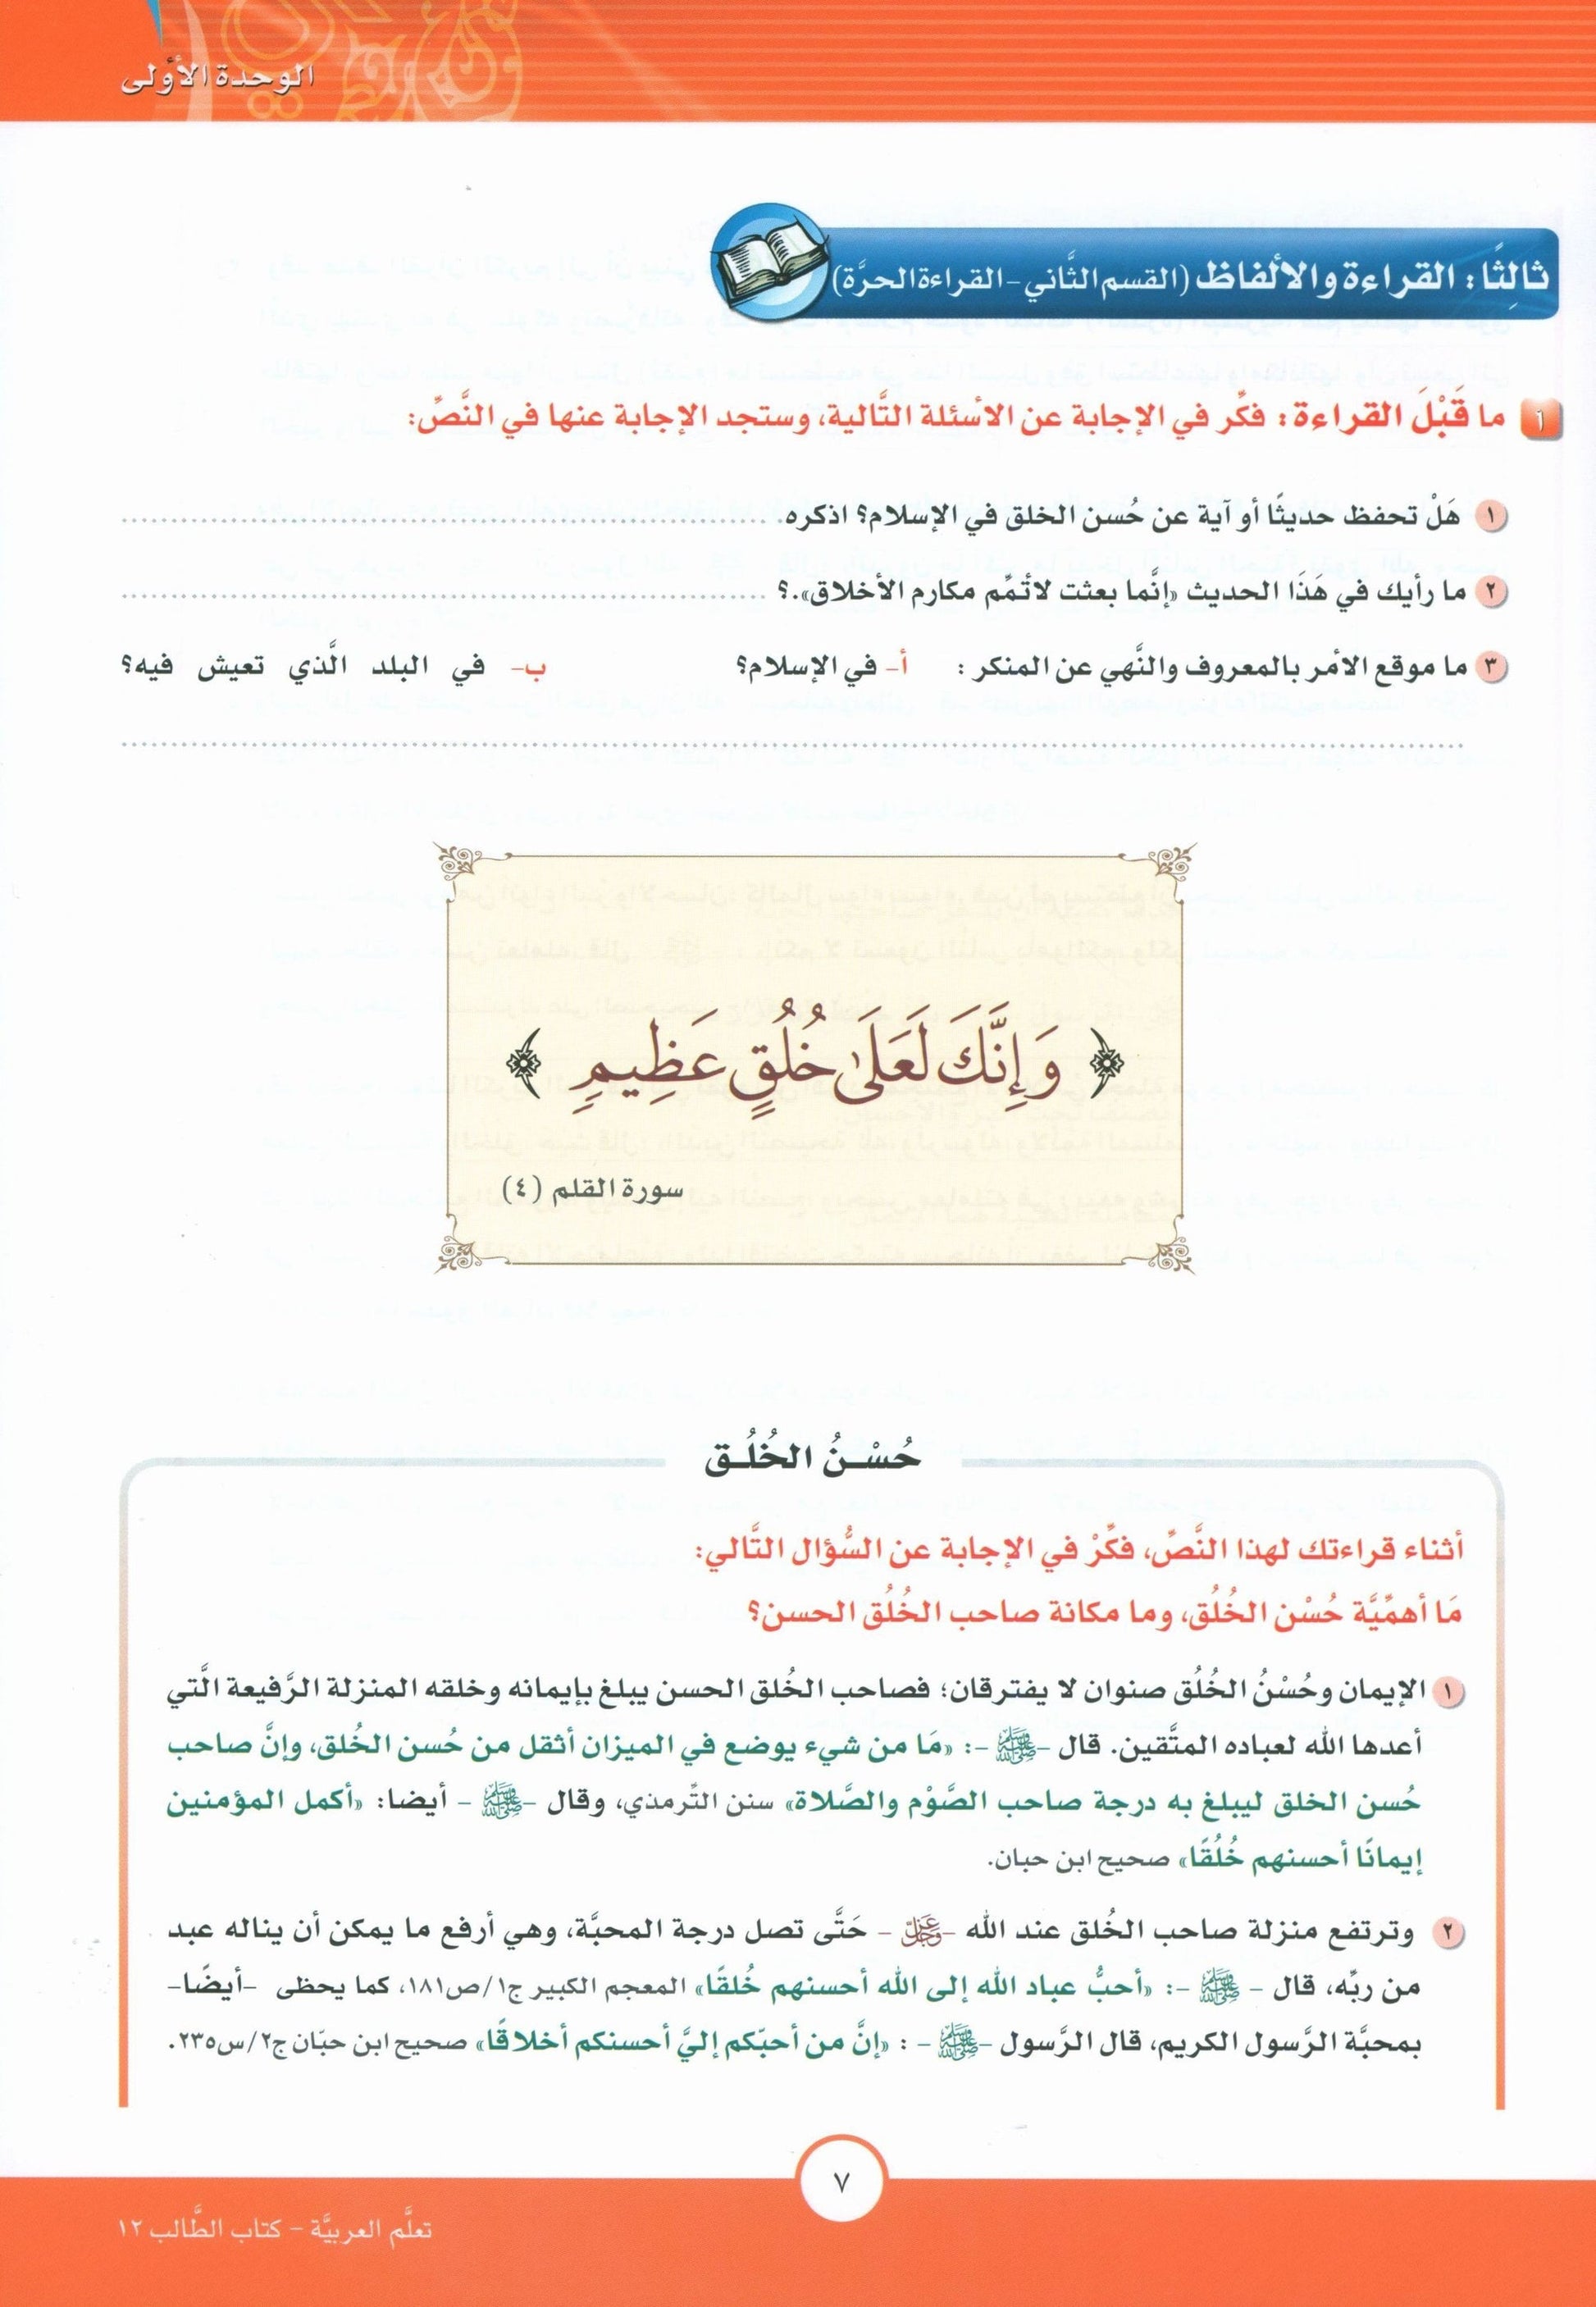 الوحدة الأولى
ثالِثًا: القراءة والألفاظ (القسم الثَّاني - القراءة الحرَّة)
١ ما قَبْلَ القراءة: فكِّر في الإجابة عن الأسئلة التَّالية، وستجد الإجابة عنها في النَّصِّ:
١ هَلْ تحفظ حديثًا أو آية عن حُسن الخلق في الإسلام؟ اذكره
٢ ما رأيك في هَذَا الحديث «إنَّما بعثت لأتمِّم مكارم الأخلاق».؟
٣ ما موقع الأمر بالمعروف والنَّهي عن المنكر: أ- في الإسلام؟ ب- في البلد الَّذي تعيش فيه؟
﴿ وَإِنَّكَ لَعَلَىٰ خُلُقٍ عَظِيمٍ ﴾
سورة القلم (٤)
حُسْنُ الخُلُق
أثناء قراءتك لهذا النَّصِّ، فكِّرْ في الإجابة عن السُّؤال التَّالي:
مَا أهمِّيَّة حُسْن الخُلُق، وما مكانة صاحب الخُلُق الحسن؟
١ الإيمان وحُسْنُ الخُلُق صنوان لا يفترقان؛ فصاحب الخُلق الحسن يبلغ بإيمانه وخلقه المنزلة الرَّفيعة الَّتي
أعدها الله لعباده المتَّقين. قال -ﷺ-: «مَا من شيء يوضع في الميزان أثقل من حُسن الخُلق، وإنَّ صاحب
حُسن الخلق ليبلغ به درجة صاحب الصَّوْم والصَّلاة» سنن التِّرمذي، وقال -ﷺ- أيضا: «أكمل المؤمنين
إيمانًا أحسنهم خُلُقًا» صحيح ابن حبان.
٢ وترتفع منزلة صاحب الخُلق عند الله -عَزَّ وَجَلَّ- حَتَّى تصل درجة المحبَّة، وهي أرفع ما يمكن أن يناله عبد
من ربِّه، قال -ﷺ-: «أحبُّ عباد الله إلى الله أحسنهم خُلقًا» المعجم الكبير ج١/ص١٨١، كما يحظى -أيضًا-
بمحبَّة الرَّسول الكريم، قال الرَّسول -ﷺ-: «إنَّ من أحبّكم إليَّ أحسنكم أخلاقًا» صحيح ابن حبّان ج٢/س٢٣٥.
٧
تعلَّم العربيَّة - كتاب الطَّالب ١٢